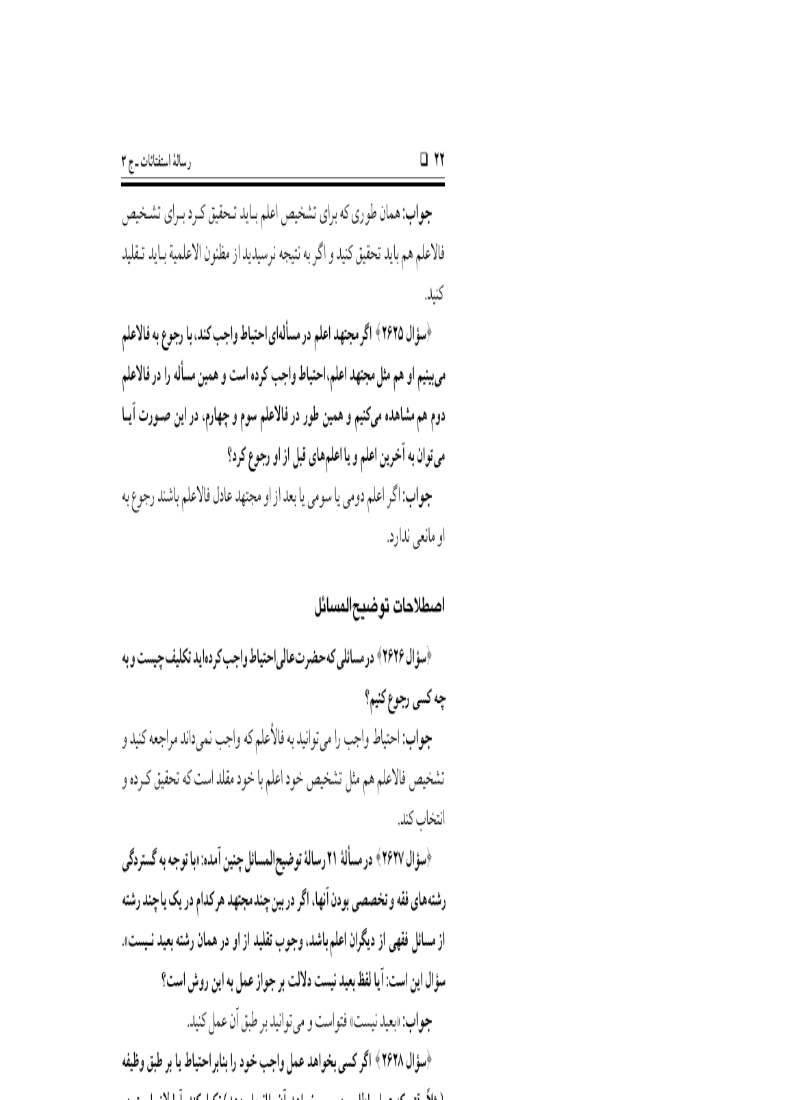 ۲۲ □ رسالهٔ استفتائات ـ ج ۳
جواب: همان طوری که برای تشخیص اعلم باید تحقیق کرد برای تشخیص
فالاعلم هم باید تحقیق کنید و اگر به نتیجه نرسیدید از مظنون الاعلمیة باید تقلید
کنید.
﴿سؤال ۲۶۲۵﴾ اگر مجتهد اعلم در مسأله‌ای احتیاط واجب کند، با رجوع به فالاعلم
می‌بینیم او هم مثل مجتهد اعلم، احتیاط واجب کرده است و همین مسأله را در فالاعلم
دوم هم مشاهده می‌کنیم و همین طور در فالاعلم سوم و چهارم، در این صورت آیا
می‌توان به آخرین اعلم و یا اعلم‌های قبل از او رجوع کرد؟
جواب: اگر اعلم دومی یا سومی یا بعد از او مجتهد عادل فالاعلم باشند رجوع به
او مانعی ندارد.
اصطلاحات توضیح‌المسائل
﴿سؤال ۲۶۲۶﴾ در مسائلی که حضرت‌عالی احتیاط واجب کرده‌اید تکلیف چیست و به
چه کسی رجوع کنیم؟
جواب: احتیاط واجب را می‌توانید به فالأعلم که واجب نمی‌داند مراجعه کنید و
تشخیص فالاعلم هم مثل تشخیص خود اعلم با خود مقلد است که تحقیق کرده و
انتخاب کند.
﴿سؤال ۲۶۲۷﴾ در مسألهٔ ۲۱ رسالهٔ توضیح‌المسائل چنین آمده: «با توجه به گستردگی
رشته‌های فقه و تخصصی بودن آنها، اگر در بین چند مجتهد هر کدام در یک یا چند رشته
از مسائل فقهی از دیگران اعلم باشد، وجوب تقلید از او در همان رشته بعید نیست».
سؤال این است: آیا لفظ بعید نیست دلالت بر جواز عمل به این روش است؟
جواب: «بعید نیست» فتواست و می‌توانید بر طبق آن عمل کنید.
﴿سؤال ۲۶۲۸﴾ اگر کسی بخواهد عمل واجب خود را بنابر احتیاط یا بر طبق وظیفه